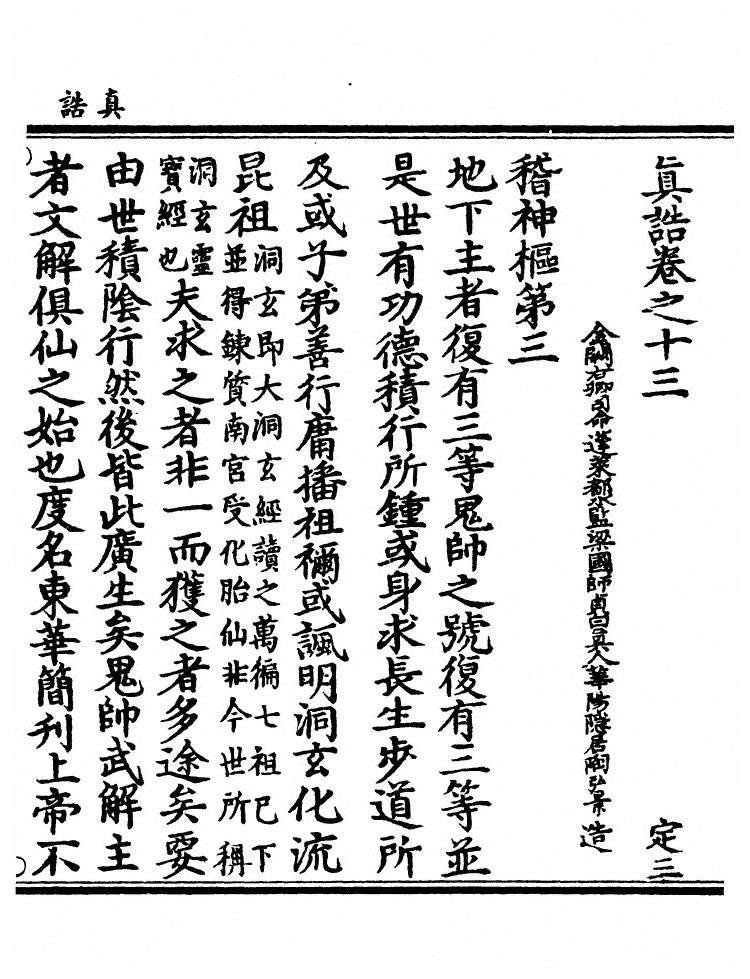 真誥
真誥卷之十三
定三
金闕右卿司命蓬萊都水監梁國師貞白真人華陽隱居陶弘景造
稽神樞第三
地下主者復有三等鬼帥之號復有三等並
是世有功德積行所鍾或身求長生步道所
及或子弟善行庸播祖禰或諷明洞玄化流
昆祖洞玄即大洞玄經讀之萬徧七祖已下
並得鍊質南宮受化胎仙非今世所稱
洞玄靈
寶經也夫求之者非一而獲之者多途矣要
由世積陰行然後皆此廣生矣鬼帥武解主
者文解俱仙之始也度名東華簡刋上帝不